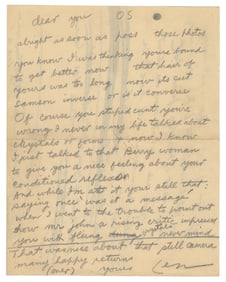 dear you OS
alright as soon as poss those photos
you know I was thinking youre bound
to get better now that hair of
yours was too long now its cut
Samson inverse or is it converse
Of course you stupid cunt you're
wrong I never in my life talked about
crystals or forms now I know
I just talked to that Berry woman
to give you a nice feeling about your
conditioned reflexes
And while I'm at it your still that:
saying once was at a message
when I went to the trouble to point out
show mr John a rising critic impressed
you with never mind
That was about that still camera
many happy returns
(over) yours Len